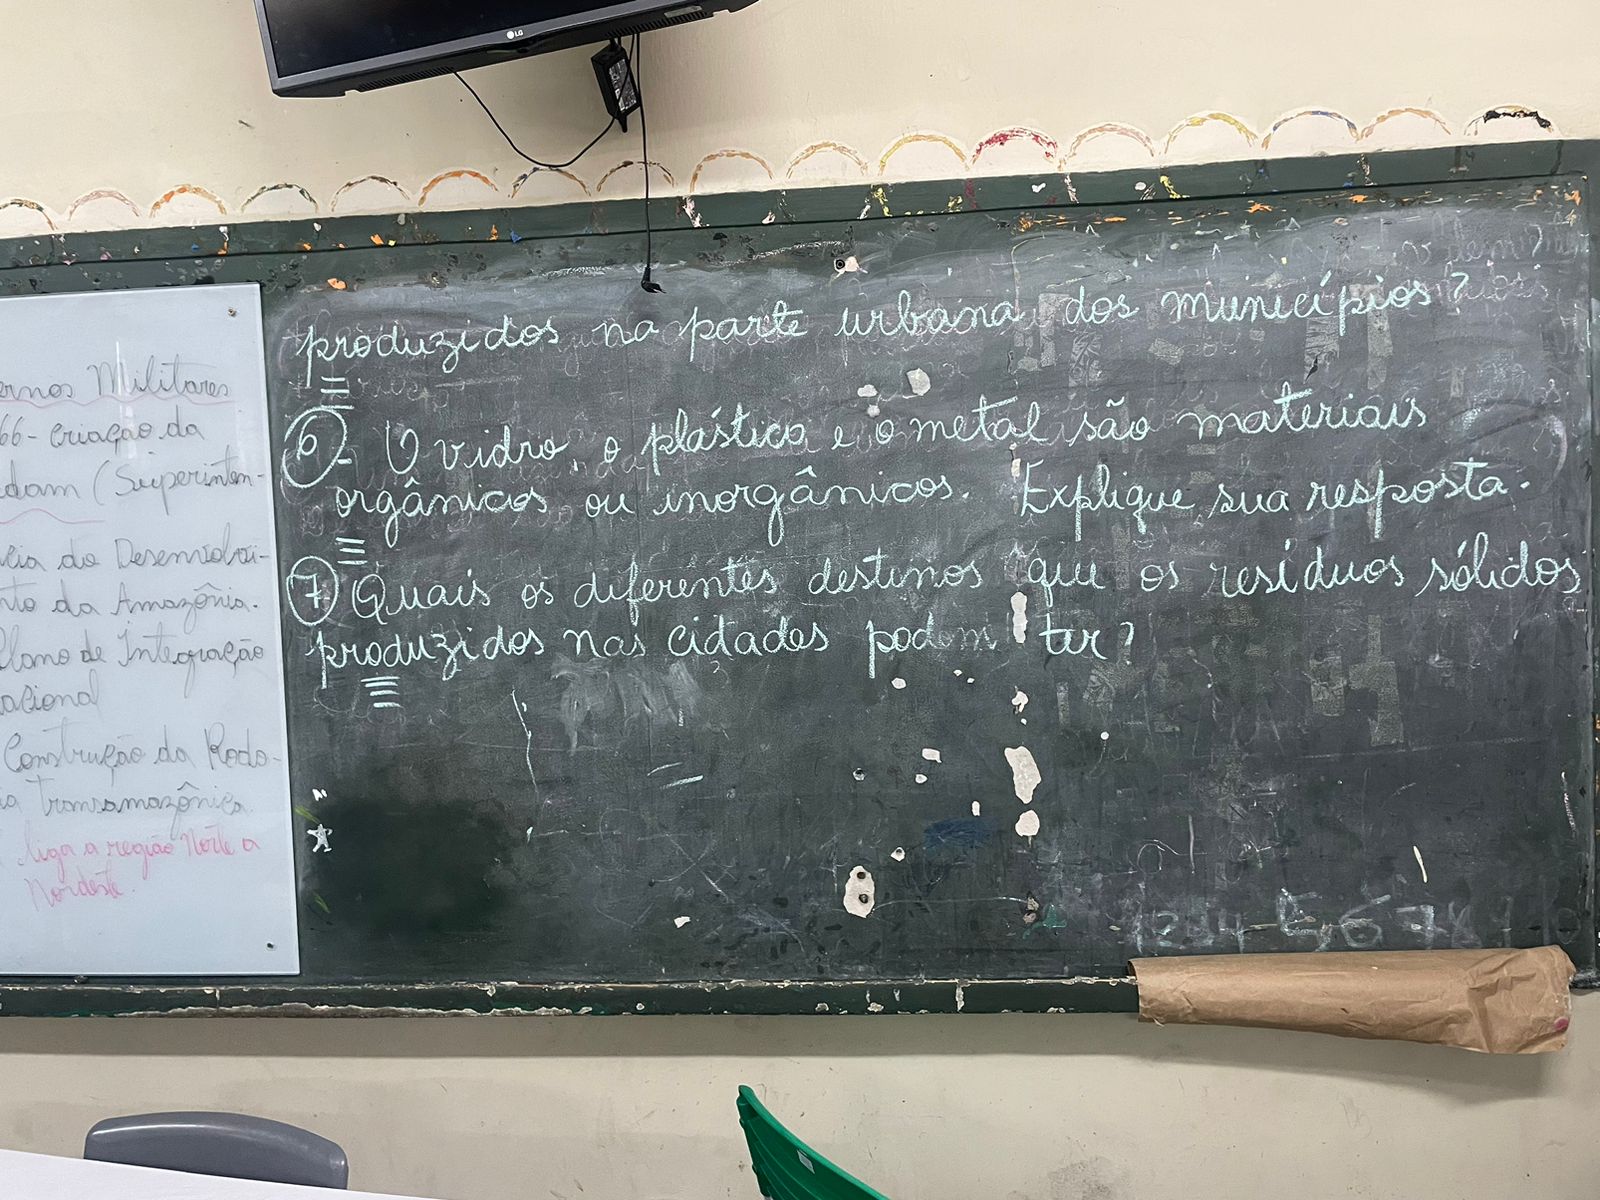 LG
ernos Militares
66 - criação da
dam (Superinten-
cia do Desenvolvi-
nto da Amazônia.
Plano de Integração
acional
Construção da Rodo-
ia Transamazônica.
liga a região Norte a
Nordeste.
produzidos na parte urbana dos municípios?
6 - O vidro, o plástico e o metal são materiais
orgânicos ou inorgânicos. Explique sua resposta.
7 Quais os diferentes destinos que os resíduos sólidos
produzidos nas cidades podem ter?
1 2 3 4 5 6 7 8 9 10